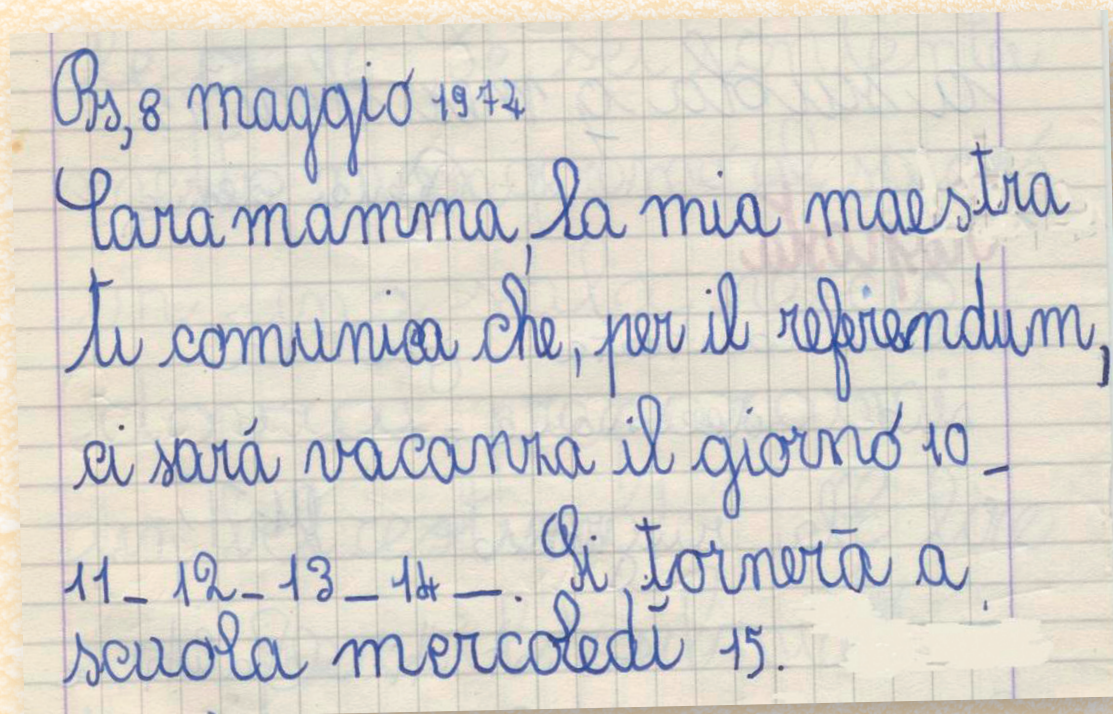 Bs, 8 maggio 1974
Cara mamma, la mia maestra
ti comunica che, per il referendum,
ci sará vacanza il giorno 10_
11_ 12_ 13_ 14_. Si tornerà a
scuola mercoledì 15.